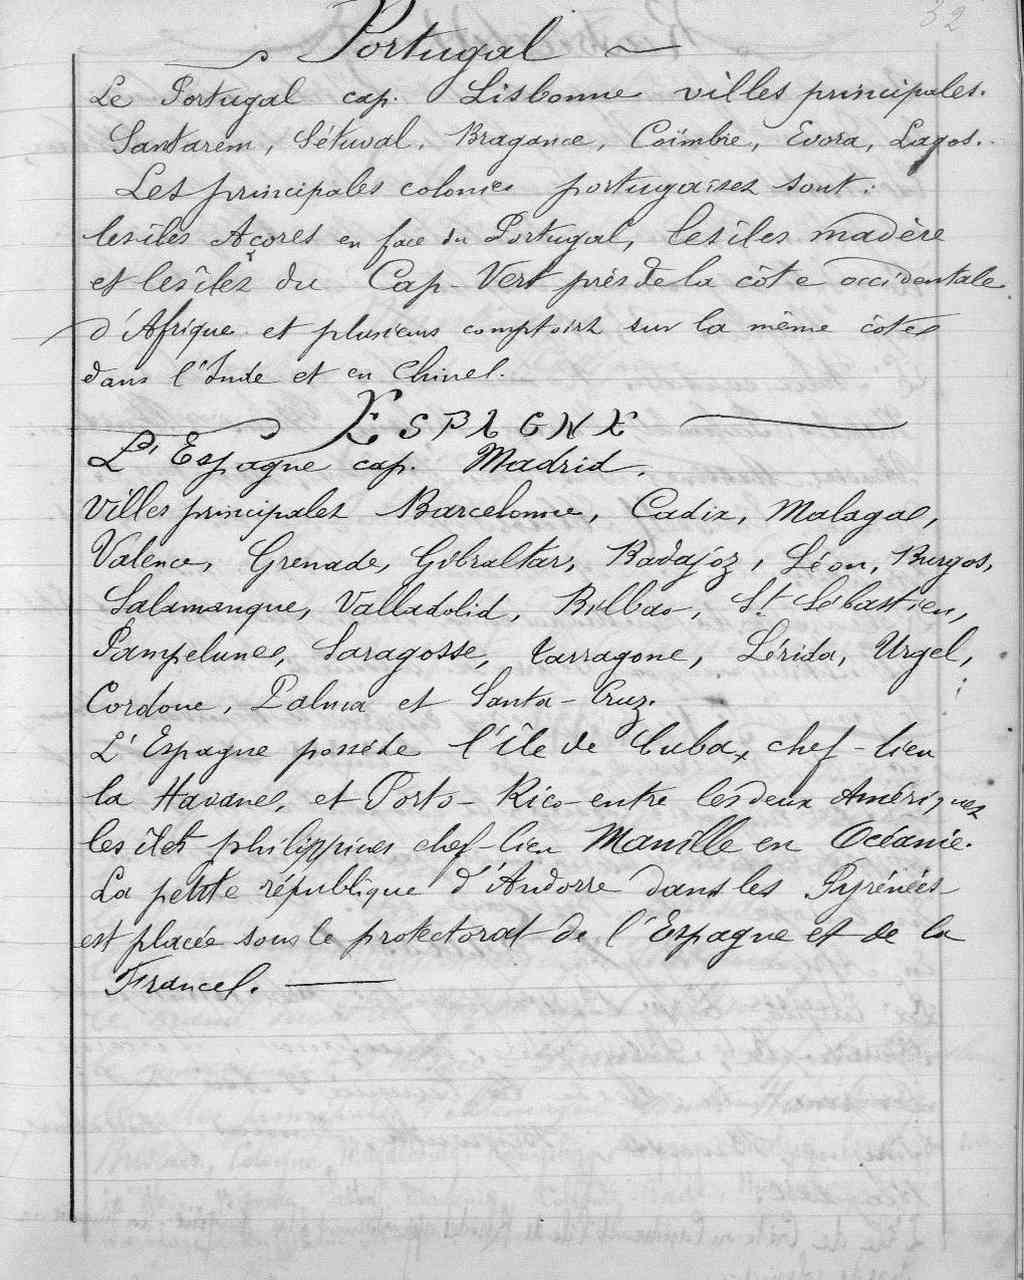 32
Portugal
Le Portugal cap. Lisbonne villes principales.
Santarem, Sétuval, Bragance, Coïmbre, Evora, Lagos.
Les principales colonies portugaises sont :
les îles Açores en face du Portugal, les îles madère
et les îles du Cap-Vert près de la côte occidentale
d'Afrique et plusieurs comptoirs sur la même côte
dans l'Inde et en Chine.
ESPAGNE
L'Espagne cap. Madrid.
Villes principales Barcelonne, Cadix, Malaga,
Valence, Grenade, Gibraltar, Badajoz, Léon, Burgos,
Salamanque, Valladolid, Bilbao, St Sébastien,
Pampelune, Saragosse, tarragone, Lérida, Urgel,
Cordoue, Palma et Santa-Cruz.
L'Espagne possède l'île de Cuba, chef-lieu
la Havane, et Porto-Rico entre les deux Amériques
les îles philippines chef-lieu Manille en Océanie.
La petite république d'Andorre dans les Pyrénées
est placée sous le protectorat de l'Espagne et de la
France.